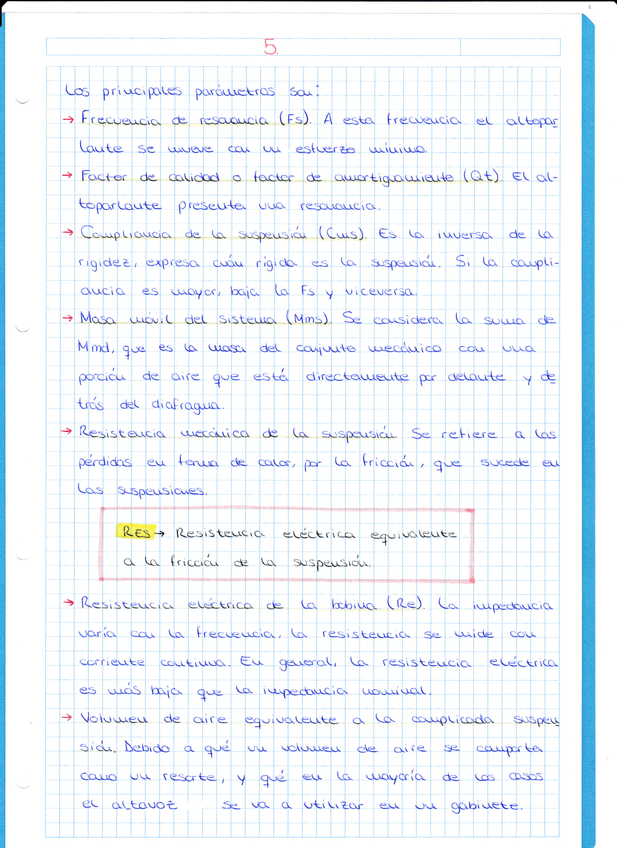 5.
Los principales parámetros son:
→ Frecuencia de resonancia (Fs). A esta frecuencia el altopar
lante se mueve con un esfuerzo mínimo.
→ Factor de calidad o factor de amortiguamiento (Qt). El al-
toparlante presenta una resonancia.
→ Compliancia de la suspensión (Cms). Es la inversa de la
rigidez, expresa cuán rígida es la suspensión. Si la compli-
ancia es mayor, baja la Fs y viceversa.
→ Masa móvil del sistema (Mms). Se considera la suma de
Mmd, que es la masa del conjunto mecánico con una
porción de aire que está directamente por delante y de
trás del diafragma.
→ Resistencia mecánica de la suspensión. Se refiere a las
pérdidas en forma de calor, por la fricción, que sucede en
las suspensiones.
RES → Resistencia eléctrica equivalente
a la fricción de la suspensión.
→ Resistencia eléctrica de la bobina (Re). La impedancia
varía con la frecuencia, la resistencia se mide con
corriente continua. En general, la resistencia eléctrica
es más baja que la impedancia nominal.
→ Volumen de aire equivalente a la complicada suspen
sión. Debido a qué un volumen de aire se comporta
como un resorte, y qué en la mayoría de los casos
el altavoz se va a utilizar en un gabinete.